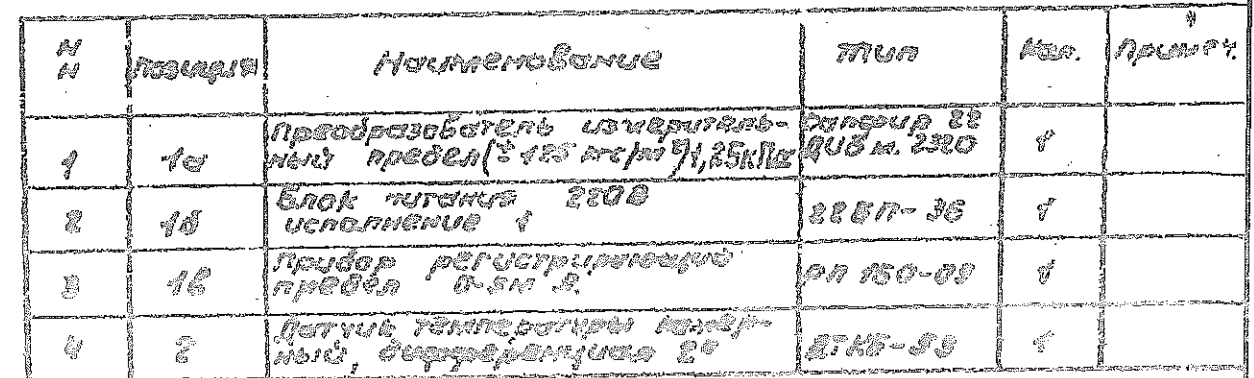 N N Позиция Наименование Тип Кол. Примеч.
1 1а Преобразователь измеритель-
ный предел (±125 кгс/м²) 1,25кПа Сапфир 22 ДИВ м. 2320 1
2 1б Блок питания 220В
исполнение 1 22БП-36 1
3 1в Прибор регистрирующий
предел РП 160-09 1
4 2 Датчик температуры камер-
ный, дифференциал 2° 1